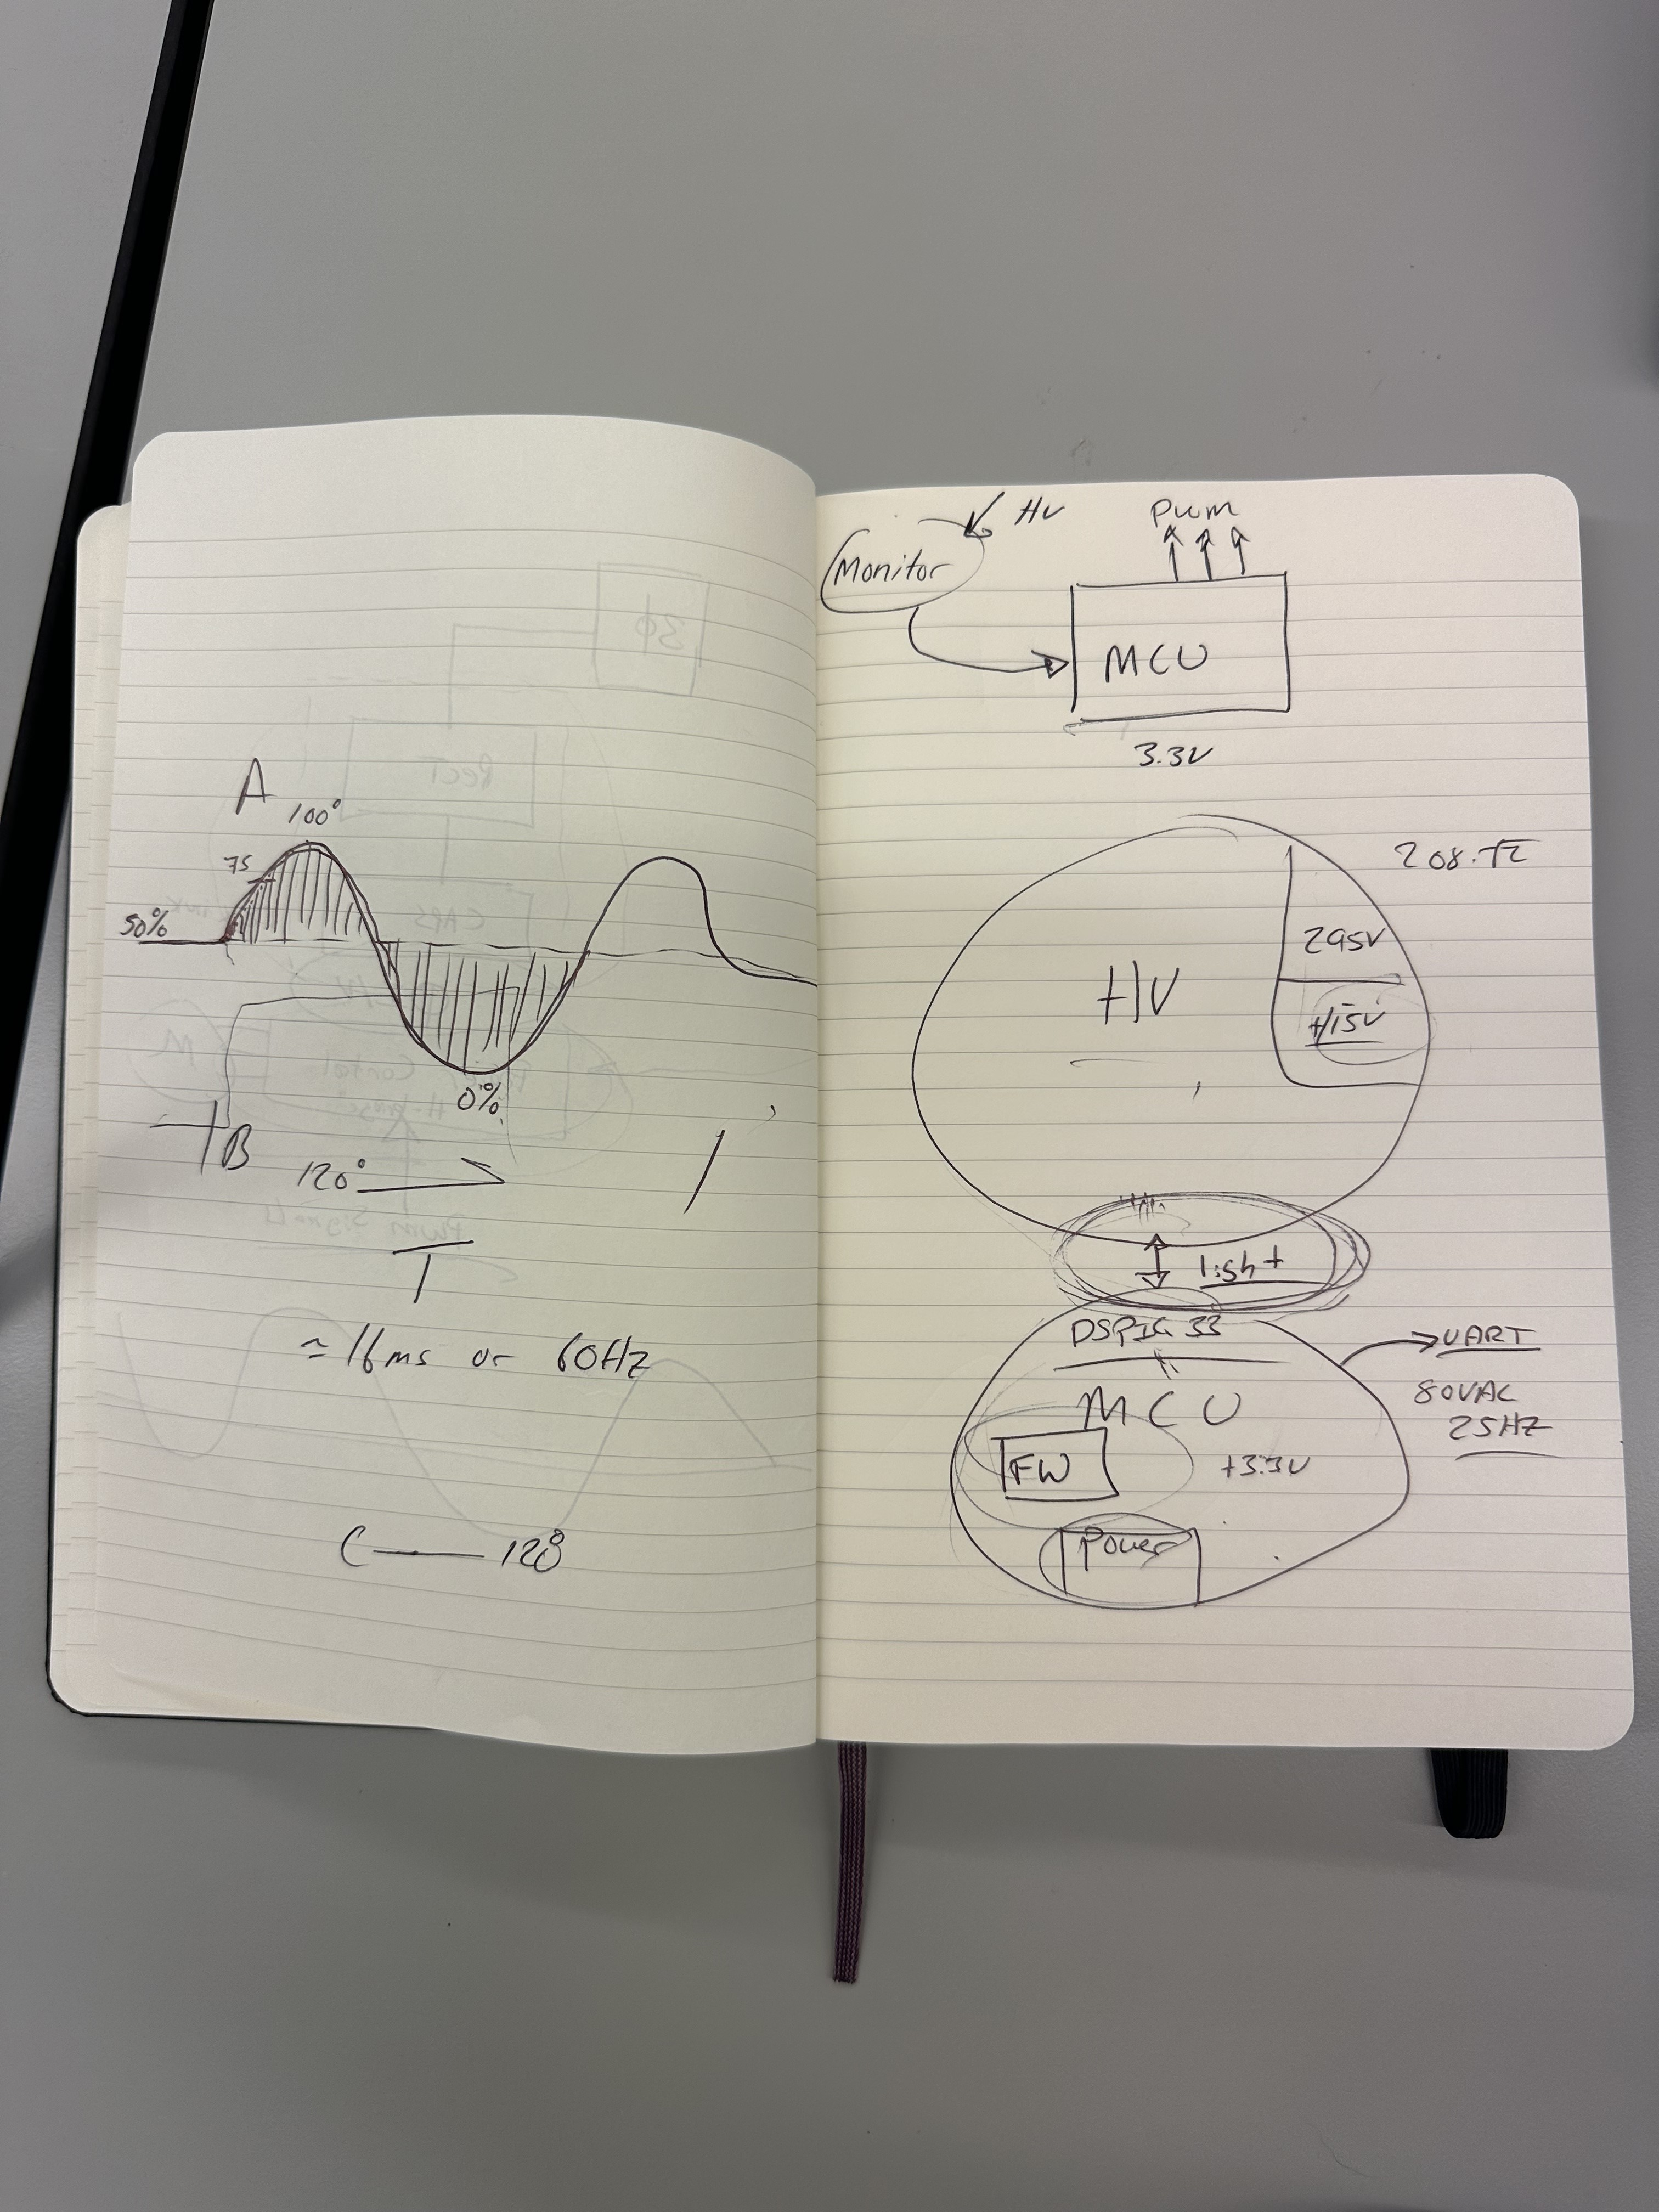 A
100°
75
50%
0%
B
120°
T
≈ 16ms or 60Hz
C — 120°
HV
PWM
Monitor
MCU
3.3V
208·√2
295V
HV
+15V
light
DSPIC 33
UART
MCU
80VAC
25HZ
FW
+3.3V
Power